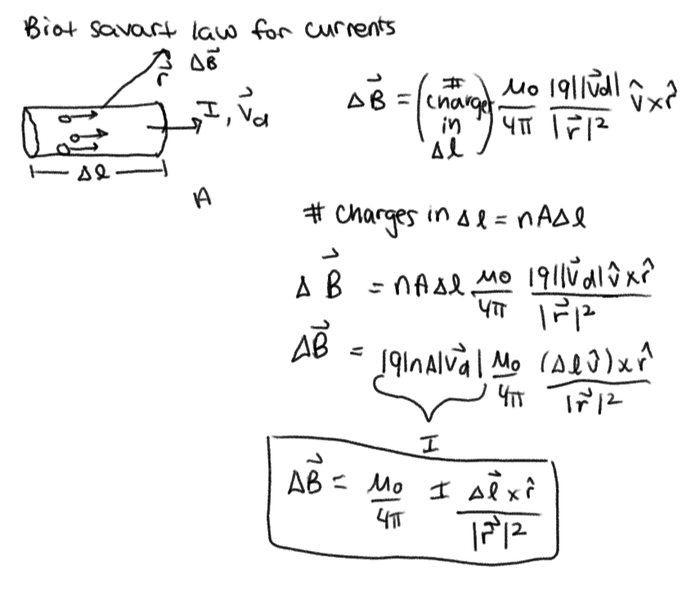 Biot savart law for currents
ΔB⃗
r⃗
I, v⃗d
Δl
A
ΔB⃗ = (# charges in Δl) μ₀/4π |q||v⃗d|/|r⃗|² v̂×r̂
# charges in Δl = nAΔl
ΔB⃗ = nAΔl μ₀/4π |q||v⃗d| v̂×r̂/|r⃗|²
ΔB⃗ = |q|nA|v⃗d| μ₀/4π (Δl v̂)×r̂/|r⃗|²
I
ΔB⃗ = μ₀/4π I Δl⃗×r̂/|r⃗|²